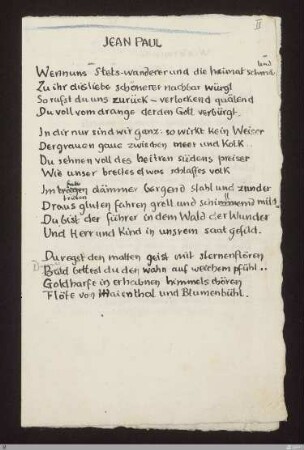 II
JEAN PAUL
Wenn uns Stets-wanderer und die heimat
Zu ihr das liebe schönerer nachbar würgt
So rufst du uns zurück – verlockend quälend
Du voll vom drange der den Gott verbürgt.
In dir nur sind wir ganz: so wirkt kein Weiser
Der grauen gaue zwischen meer und Kolk..
Du sehnen voll des heitren südens preiser
Wie unser breites etwas schlaffes volk
Im dämmer bergend stahl und zunder
Draus gluten fahren grell und mild
Du bist der führer in dem Wald der Wunder
Und Herr und Kind in unsrem saat gefild.
Du regst den matten geist mit sternenflören
bettest du den wahn auf weichem pfühl..
Goldharfe in erhabnen himmels chören
Flöte von Maienthal und Blumenbühl.